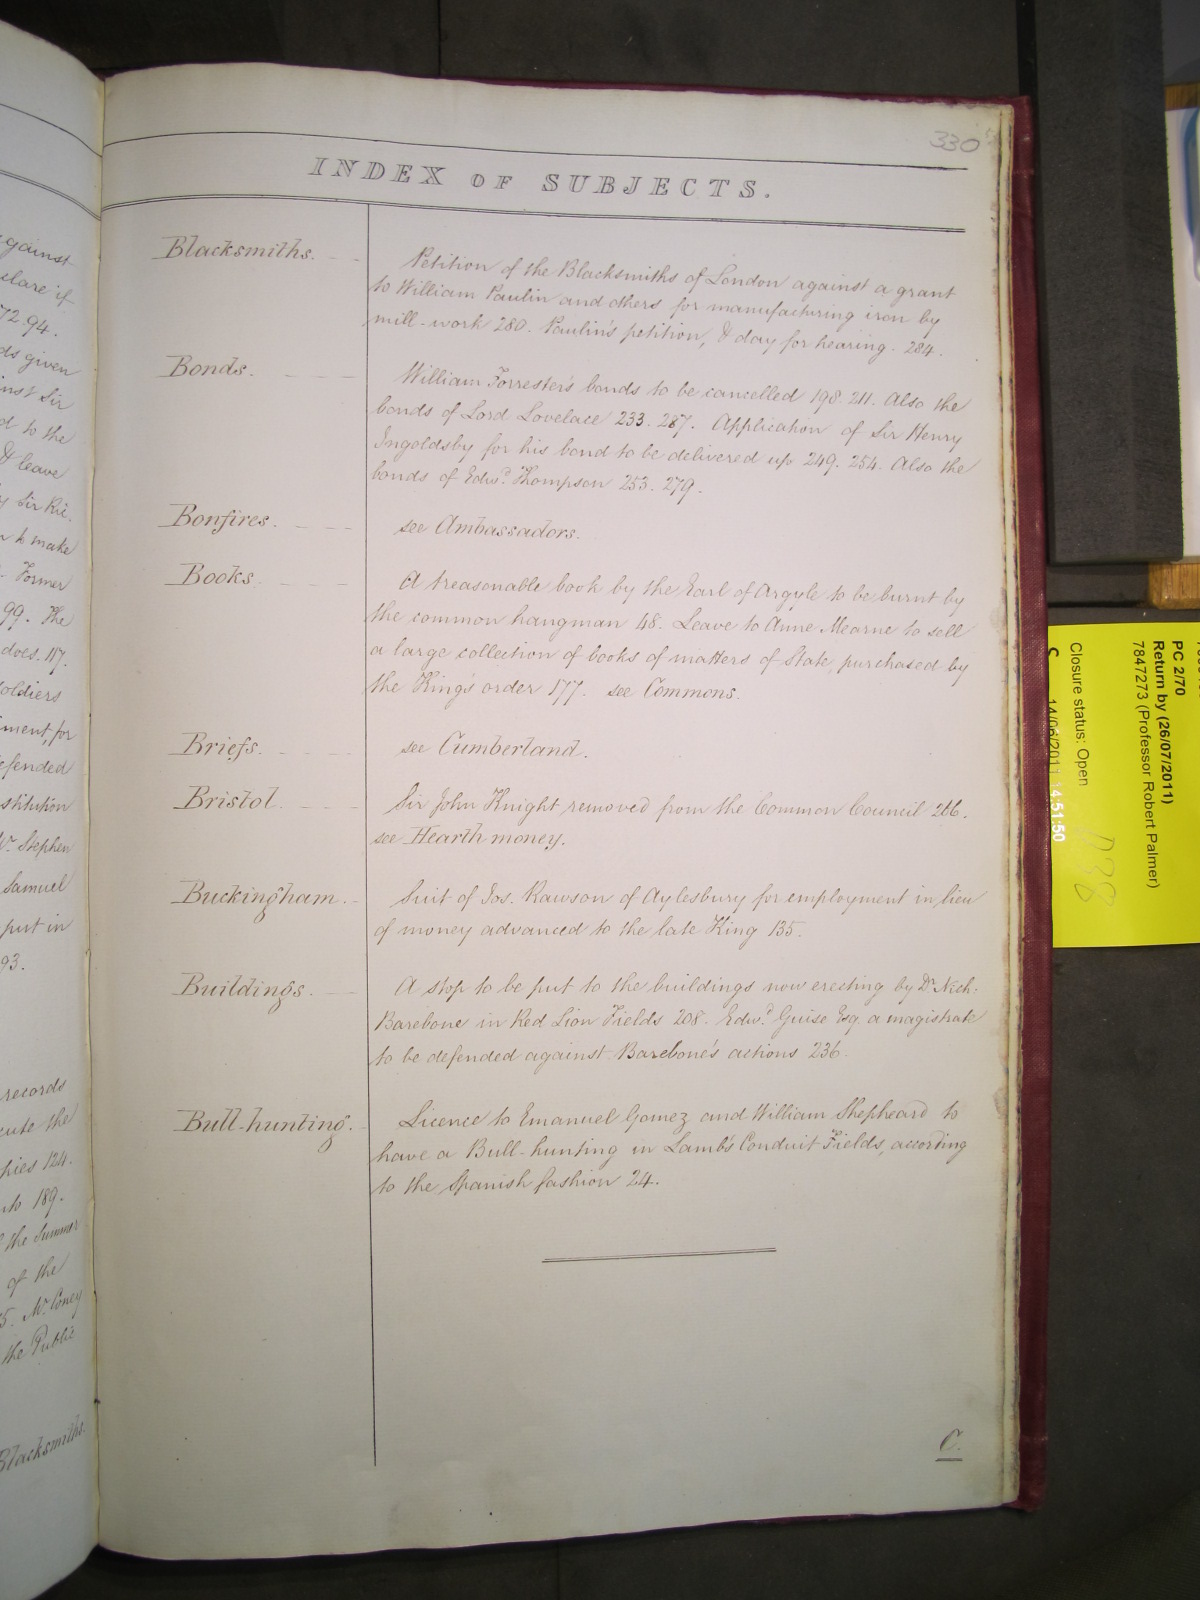 330
INDEX OF SUBJECTS.
Blacksmiths.
Petition of the Blacksmiths of London against a grant
to William Paulin and others for manufacturing iron by
mill-work 280. Paulin's petition, & day for hearing. 284.
Bonds.
William Forrester's bonds to be cancelled 198. 211. Also the
bonds of Lord Lovelace 233. 287. Application of Sir Henry
Ingoldsby for his bond to be delivered up 249. 254. Also the
bonds of Edwd. Thompson 253. 279.
Bonfires.
see Ambassadors.
Books.
A treasonable book by the Earl of Argyle to be burnt by
the common hangman 48. Leave to Anne Mearne to sell
a large collection of books of matters of State, purchased by
the King's order 177. see Commons.
Briefs.
see Cumberland.
Bristol.
Sir John Knight removed from the Common Council 266.
see Hearth money.
Buckingham.
Suit of Jos. Rawson of Aylesbury for employment in lieu
of money advanced to the late King 135.
Buildings.
A stop to be put to the buildings now erecting by Dr. Nich:
Barebone in Red Lion Fields 208. Edwd. Guise Esq. a magistrate
to be defended against Barebone's actions 236.
Bull-hunting.
Licence to Emanuel Gomez and William Shepheard to
have a Bull-hunting in Lamb's Conduit Fields, according
to the Spanish fashion 24.
C.
against
clare if
72. 94.
ds given
inst Sir
d to the
& leave
y Sir Ric.
n to make
Former
99. The
does. 117.
oldiers
ment, for
efended
stitution
Wr. Stephen
Samuel
put in
93.
records
cute the
pies 124.
nto 189.
the Summer
of the
5. Mr. Coney
the Public
Blacksmiths.
PC 2/70
Return by (26/07/2011)
7847273 (Professor Robert Palmer)
Closure status: Open
C 14/06/2011 14:51:50
D38